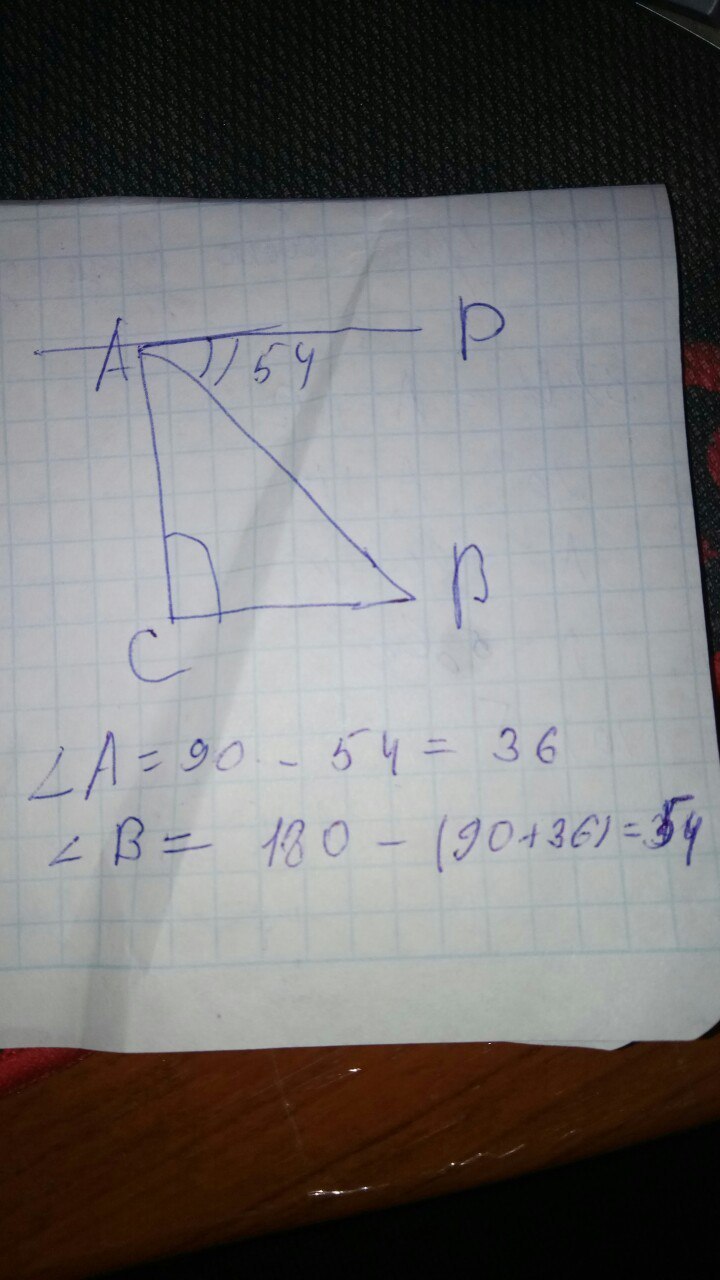 A
D
54
B
C
∠A = 90 - 54 = 36
∠B = 180 - (90+36) = 54